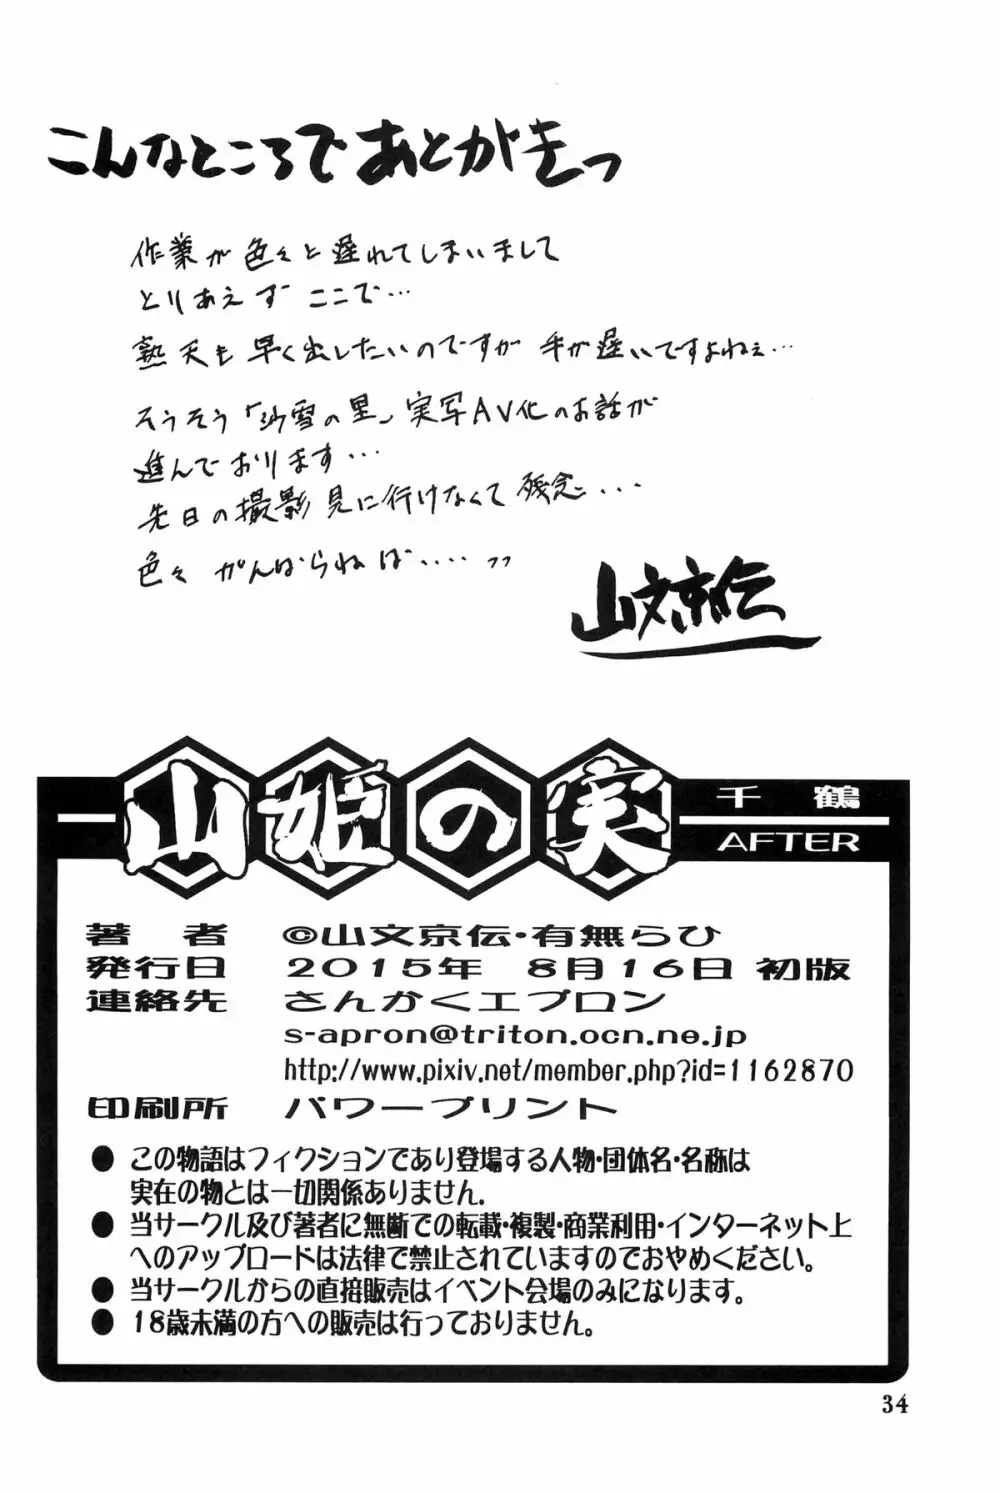 こんなところであとがきっ
作業が色々と遅れてしまいまして
とりあえず ここで…
熟天も早く出したいのですが 手が遅いですよねぇ…
そうそう「沙雪の里」実写AV化のお話が
進んでおります…
先日の撮影見に行けなくて残念…
色々 がんばらねば‥‥っっ
山文京伝
山姫の実
千鶴
AFTER
著者 ©山文京伝・有無らひ
発行日 2015年 8月16日 初版
連絡先 さんかくエプロン
s-apron@triton.ocn.ne.jp
http://www.pixiv.net/member.php?id=1162870
印刷所 パワープリント
● この物語はフィクションであり登場する人物・団体名・名称は
実在の物とは一切関係ありません.
● 当サークル及び著者に無断での転載・複製・商業利用・インターネット上
へのアップロードは法律で禁止されていますのでおやめください。
● 当サークルからの直接販売はイベント会場のみになります。
● 18歳未満の方への販売は行っておりません。
34